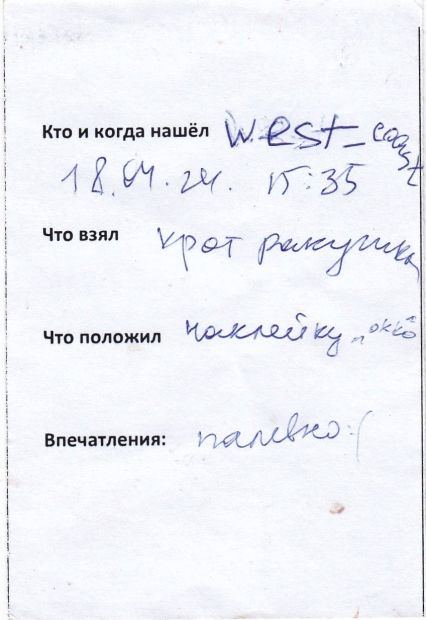 Кто и когда нашёл west_coast
18.04.24. 15:35
Что взял крот ракушка
Что положил наклейку „окко"
Впечатления: палевно :(